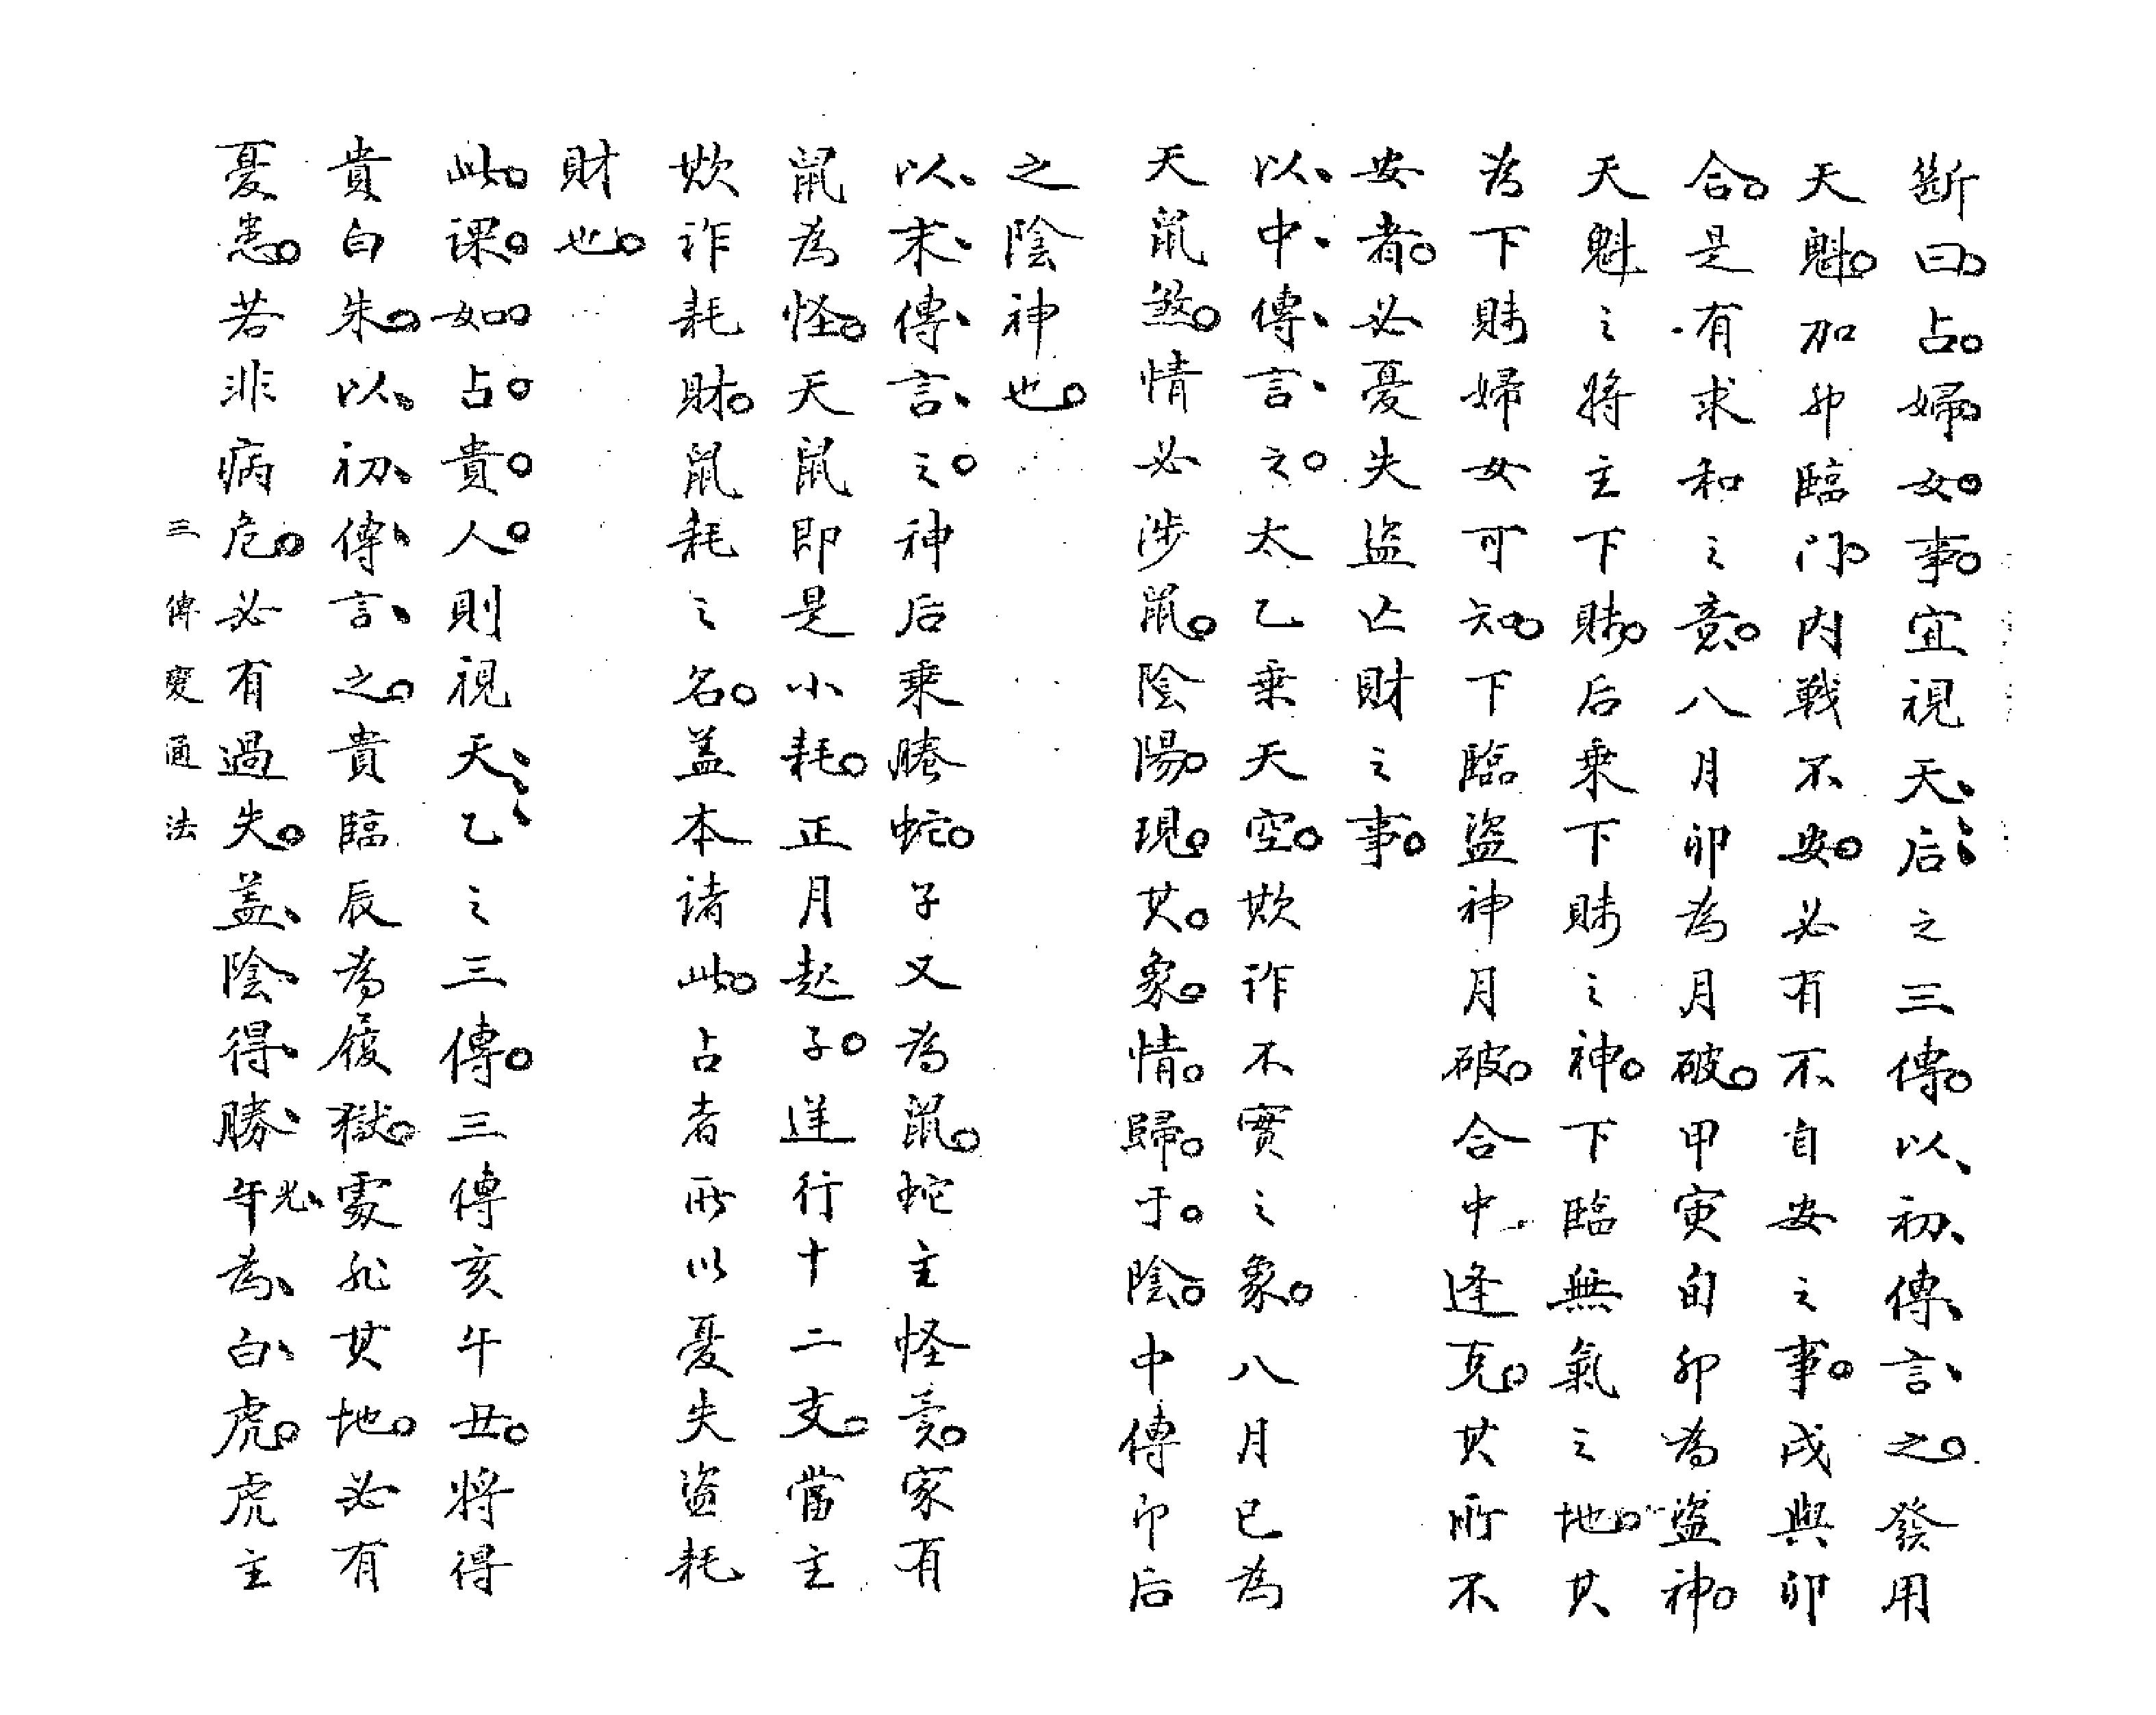 斷曰占婦女事宜視天后之三傳以初傳言之發用
天魁加卯臨門內戰不安必有不自安之事戌與卯
合是有求和之意八月卯為月破甲寅旬卯為盜神
天魁之將主下賤后乘下賤之神下臨無氣之地其
為下賤婦女可知下臨盜神月破合中逢克其所不
安者必憂失盜亡財之事
以中傳言之太乙乘天空欺詐不實之象八月巳為
天鼠煞情必涉鼠陰陽現其象情歸于陰中傳即后
之陰神也
以末傳言之神后乘螣蛇子又為鼠蛇主怪家有
鼠為怪天鼠即是小耗正月起子逆行十二支當主
欺詐耗財鼠耗之名蓋本諸此占者所以憂失盜耗
財也
此課如占貴人則視天乙之三傳三傳亥午丑將得
貴白朱以初傳言之貴臨辰為履獄處非其地必有
憂患若非病危必有過失蓋陰得勝光午為白虎虎主
三傳變通法